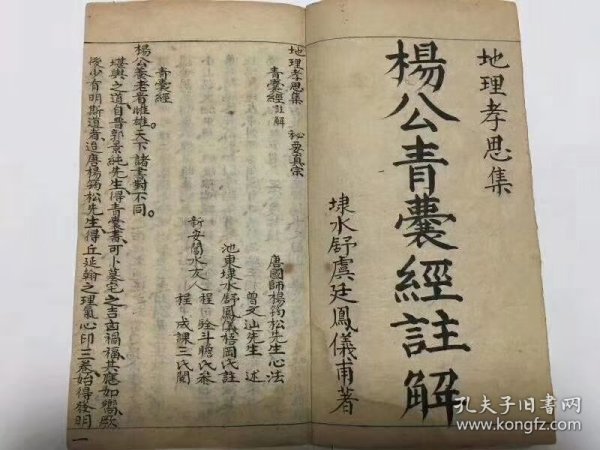 地理孝思集
楊公青囊經註解
埭水舒虞廷鳳儀甫著
地理孝思集
青囊經註解 秘要真宗
唐國師楊筠松先生心法
曾文辿先生 述
池東埭水舒鳳儀梧岡氏註
新安閬水友人 程 斗瞻氏叅
程 成課三氏閱
青囊經
楊公養老看雌雄天下諸書對不同
堪輿之道自晋郭景純先生得青囊書可卜墓宅之吉凶禍福其應如響厥
後少有明斯道者迨唐楊筠松先生得丘延翰之理氣心印三卷始得發明
一
孔夫子旧书网
www.kongfz.com